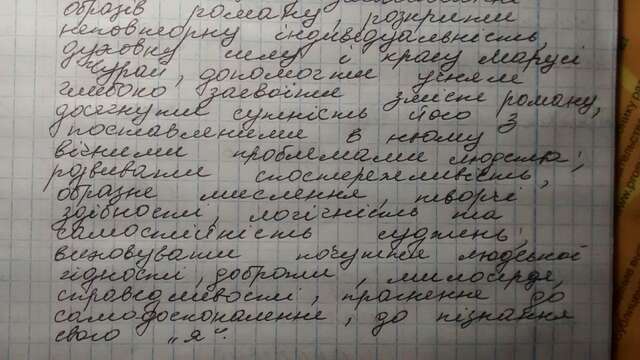 образів роману, розкрити
неповторну індивідуальність,
духовну силу і красу Марусі
Чурай, допомогти учням
глибоко засвоїти зміст роману,
досягнути сутність його з
поставленими в ньому
вічними проблемами людства;
розвивати спостережливість,
образне мислення, творчі
здібності, логічність та
самостійність суджень;
виховувати почуття людської
гідності, доброти, милосердя,
справедливості, прагнення до
самодосконалення, до пізнання
свого "я".